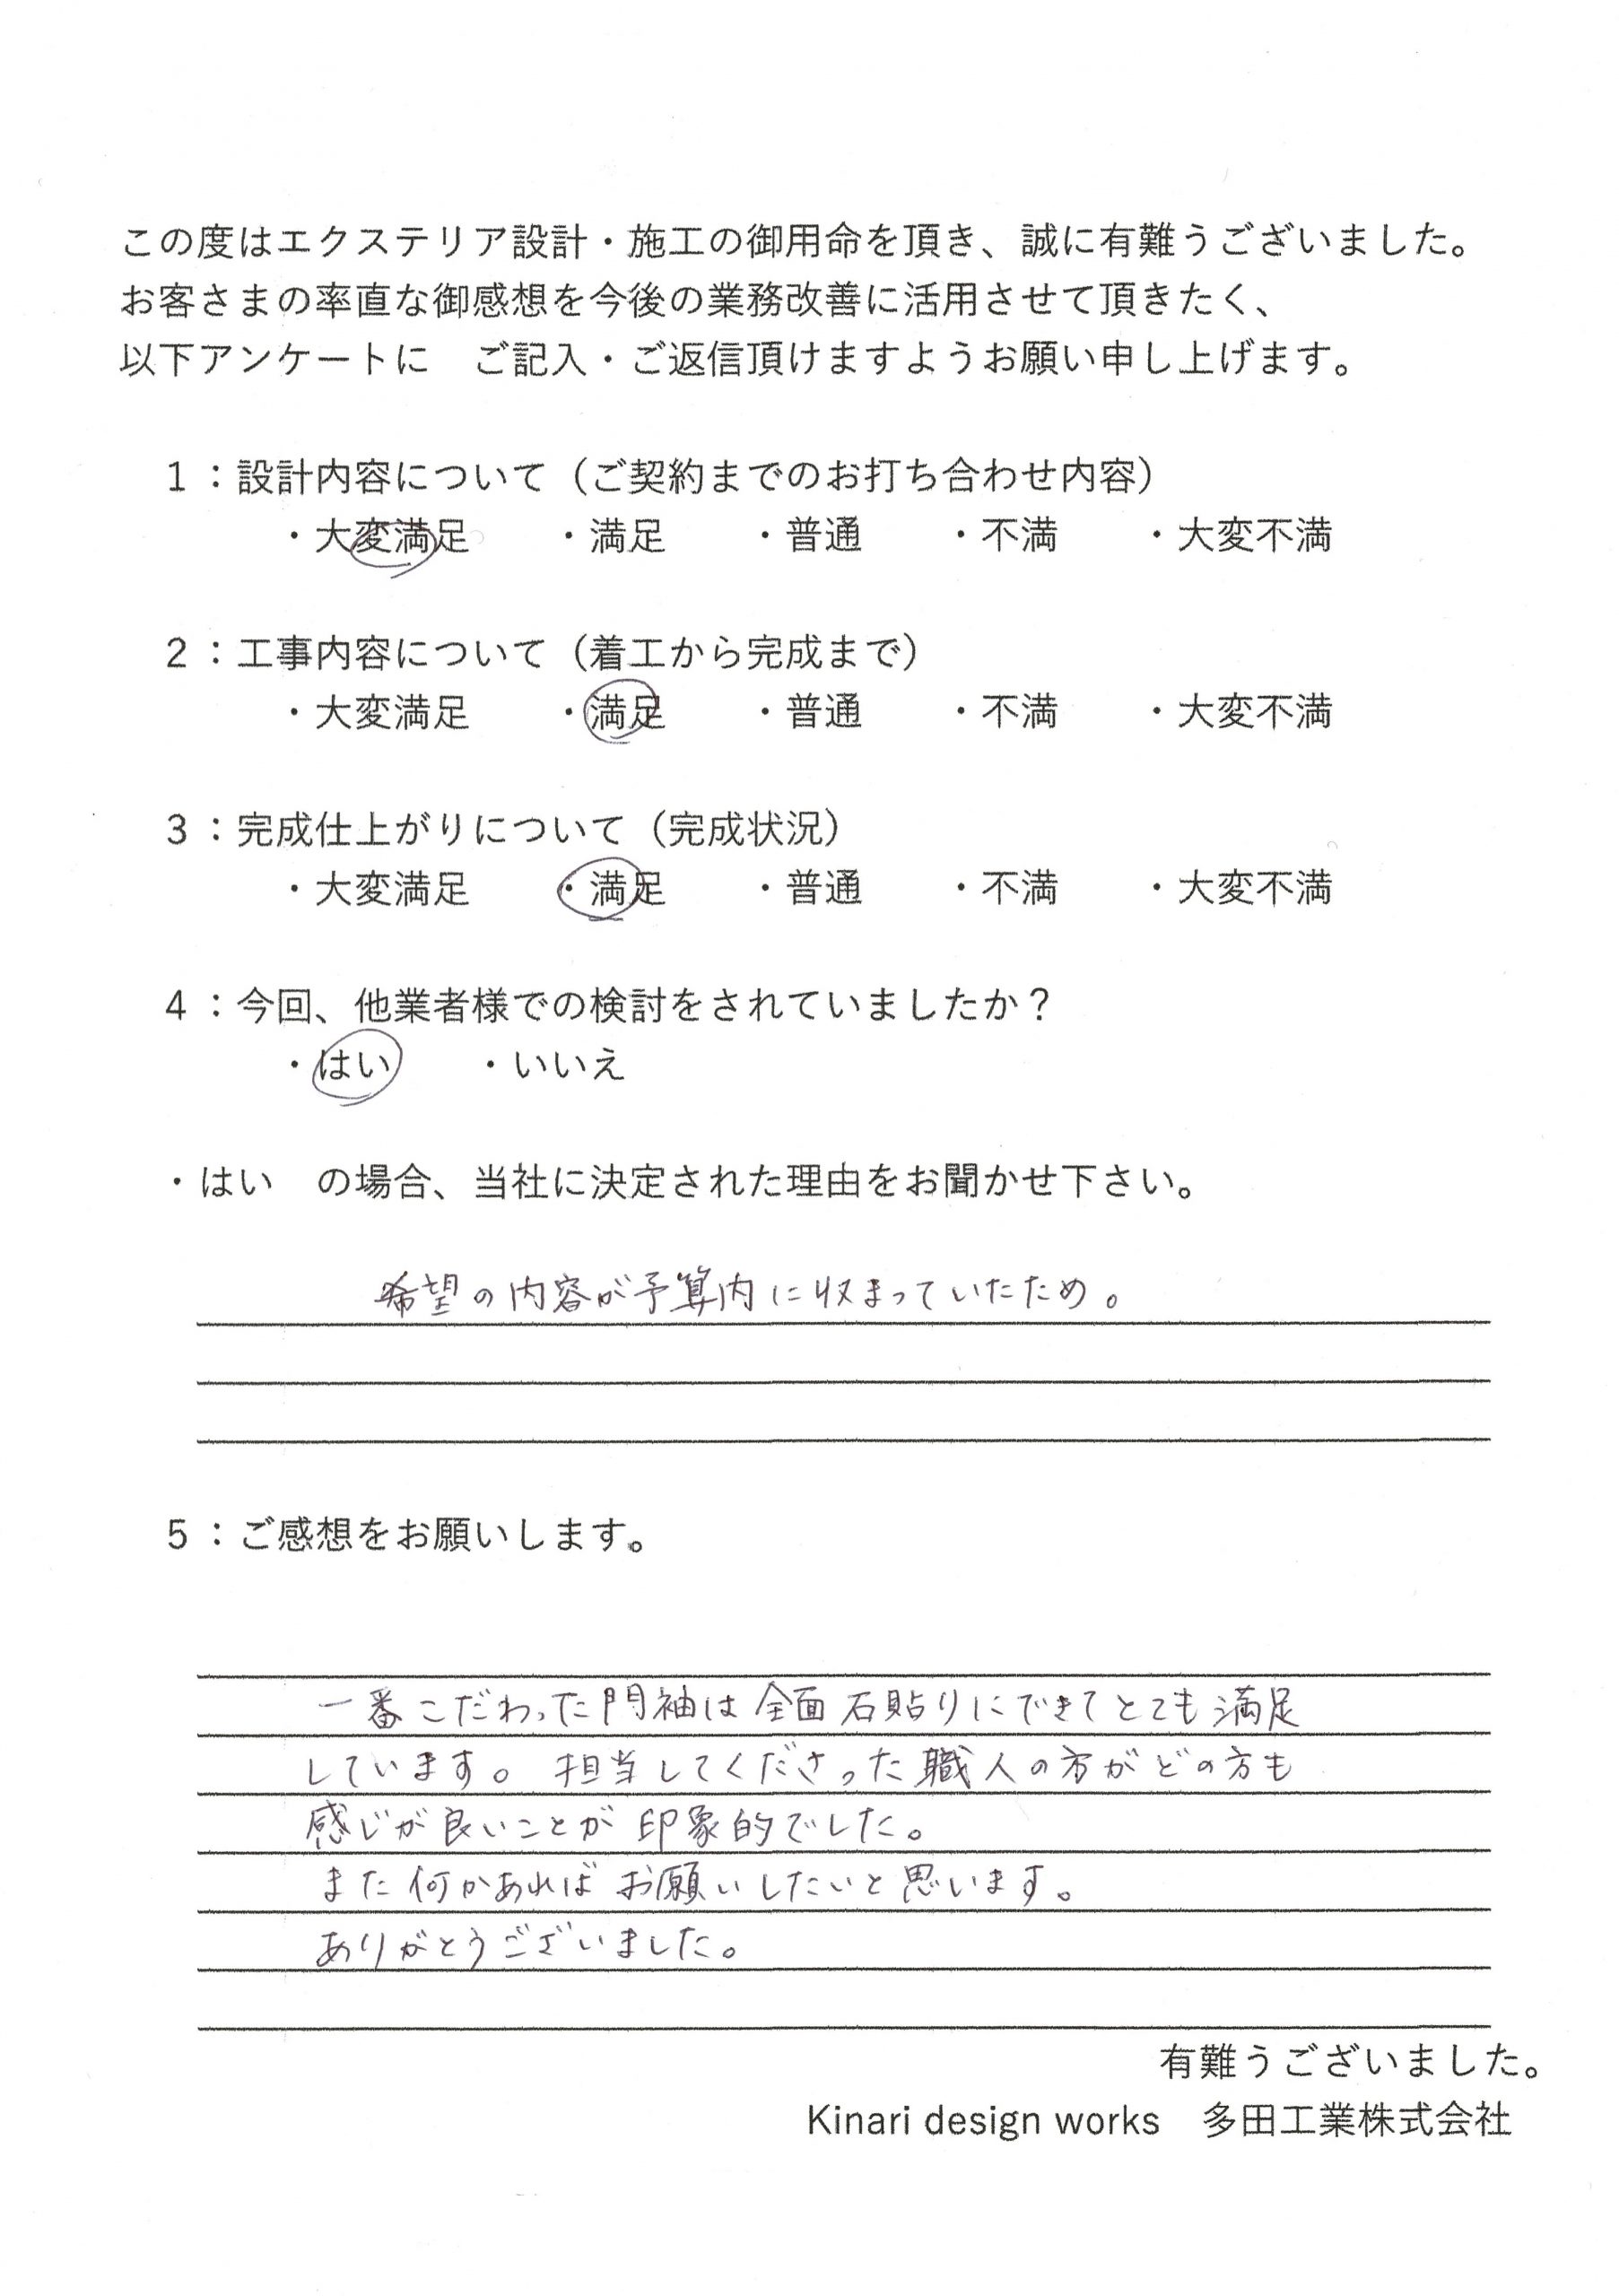 この度はエクステリア設計・施工の御用命を頂き、誠に有難うございました。
お客さまの率直な御感想を今後の業務改善に活用させて頂きたく、
以下アンケートに　ご記入・ご返信頂けますようお願い申し上げます。
1：設計内容について（ご契約までのお打ち合わせ内容）
・大変満足　・満足　・普通　・不満　・大変不満
2：工事内容について（着工から完成まで）
・大変満足　・満足　・普通　・不満　・大変不満
3：完成仕上がりについて（完成状況）
・大変満足　・満足　・普通　・不満　・大変不満
4：今回、他業者様での検討をされていましたか？
・はい　・いいえ
・はい　の場合、当社に決定された理由をお聞かせ下さい。
希望の内容が予算内に収まっていたため。
5：ご感想をお願いします。
一番こだわった門袖は全面石貼りにできてとても満足
しています。担当してくださった職人の方がどの方も
感じが良いことが印象的でした。
また何かあればお願いしたいと思います。
ありがとうございました。
有難うございました。
Kinari design works　多田工業株式会社